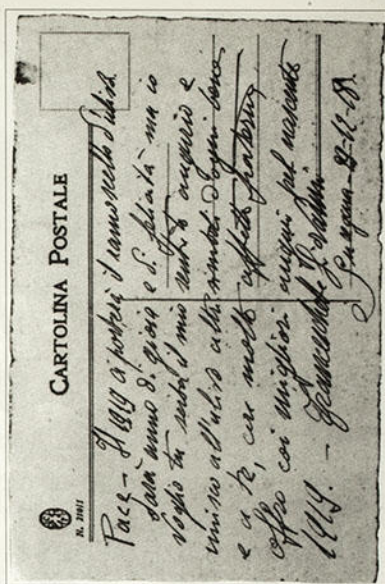 CARTOLINA POSTALE
Pace - Il 1919 ci porterà il ramoscello d'ulivo.
Sarà anno di gioia e di felicità ma io
voglio tu senta il mio sentito augurio e
unisco all'ulivo altri simboli d'ogni bene
e a te, con molto affetto fraterno,
offro coi migliori auguri pel nascente
1919. -